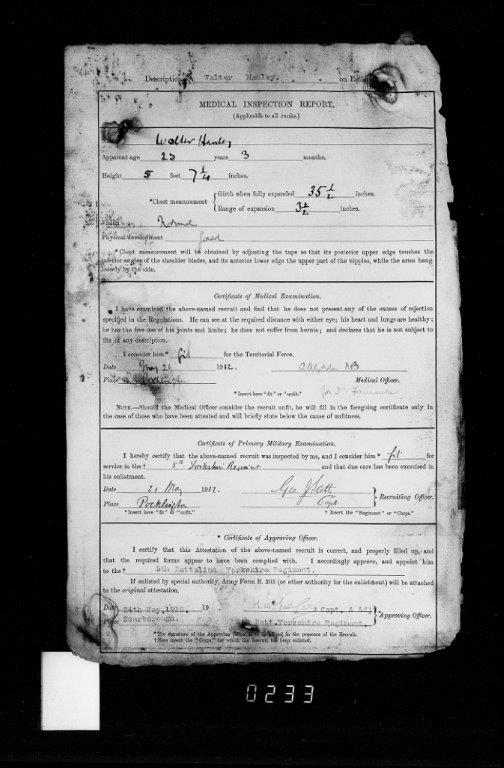 Description Walter Hanley. on En
MEDICAL INSPECTION REPORT.
(Applicable to all ranks.)
Walter Hanley
Apparent age 23 years 3 months.
Height 5 feet 7 1/4 inches.
*Chest measurement { Girth when fully expanded 35 1/2 inches.
Range of expansion 3 1/2 inches.
Vision Normal
Physical development Good
* Chest measurement will be obtained by adjusting the tape so that its posterior upper edge touches the
inferior angles of the shoulder blades, and its anterior lower edge the upper part of the nipples, while the arms hang
loosely by the side.
Certificate of Medical Examination.
I have examined the above-named recruit and find that he does not present any of the causes of rejection
specified in the Regulations. He can see at the required distance with either eye; his heart and lungs are healthy;
he has the free use of his joints and limbs; he does not suffer from hernia; and declares that he is not subject to
fits of any description.
I consider him* fit for the Territorial Force.
Date May 21 1912. MB
Place Pocklington Medical Officer.
*Insert here "fit" or "unfit."
NOTE.—Should the Medical Officer consider the recruit unfit, he will fill in the foregoing certificate only in
the case of those who have been attested and will briefly state below the cause of unfitness.
Certificate of Primary Military Examination.
I hereby certify that the above-named recruit was inspected by me, and I consider him * fit for
service in the † 5th Yorkshire Regiment and that due care has been exercised in
his enlistment.
Date 21 May 1912. Geo. Scott
Place Pocklington Capt. } Recruiting Officer.
*Insert here "fit" or "unfit." † Insert the "Regiment" or "Corps."
* Certificate of Approving Officer.
I certify that this Attestation of the above-named recruit is correct, and properly filled up, and
that the required forms appear to have been complied with. I accordingly approve, and appoint him
to the† 5th Battalion Yorkshire Regiment.
If enlisted by special authority, Army Form B. 203 (or other authority for the enlistment) will be attached
to the original attestation.
Date 24th May, 1912. 19 Capt. & Adj
Place Scarborough. Batt. Yorkshire Regiment. } Approving Officer.
*The signature of the Approving Officer is to be affixed in the presence of the Recruit.
†Here insert the "Corps" for which the Recruit has been enlisted.
0233